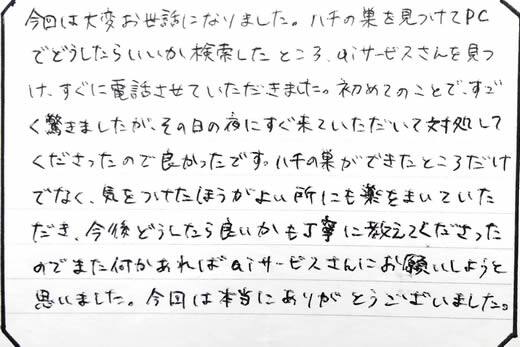 今回は大変お世話になりました。ハチの巣を見つけてPC
でどうしたらいいか検索したところ、aiサービスさんを見つ
け、すぐに電話させていただきました。初めてのことで、すご
く驚きましたが、その日の夜にすぐ来ていただいて対処して
くださったので良かったです。ハチの巣ができたところだけ
でなく、気をつけたほうがよい所にも薬をまいていた
だき、今後どうしたら良いかも丁寧に教えてくださった
のでまた何かあればaiサービスさんにお願いしようと
思いました。今回は本当にありがとうございました。